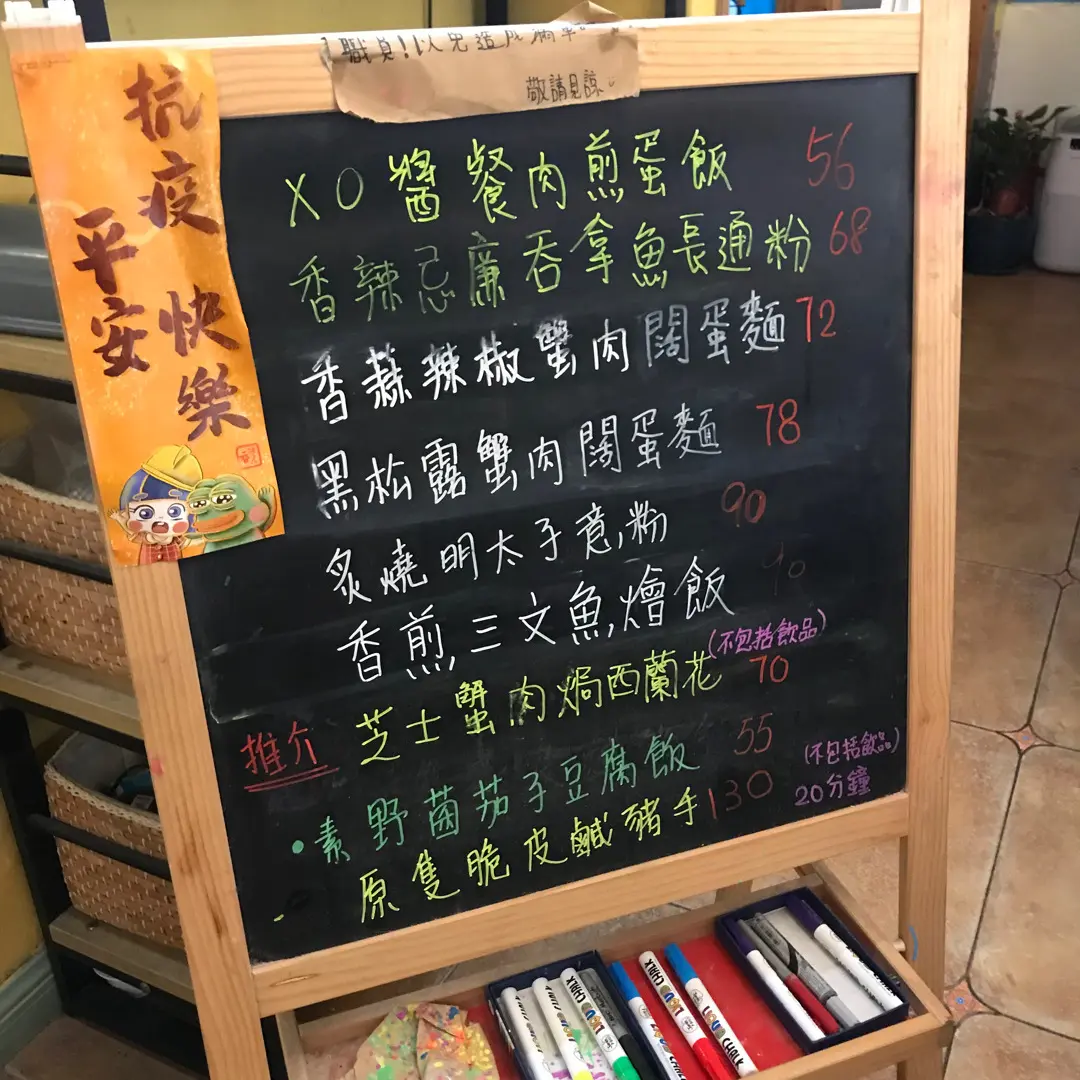 職員!以免造成
敬請見諒。
抗疫
平安
快樂
XO醬餐肉煎蛋飯 56
香辣忌廉吞拿魚長通粉 68
香蒜辣椒蟹肉闊蛋麵 72
黑松露蟹肉闊蛋麵 78
炙燒明太子意粉 90
香煎三文魚燴飯
(不包括飲品)
芝士蟹肉焗西蘭花 70
推介
•素野菌茄子豆腐飯 55
(不包括飲品)
原隻脆皮鹹豬手 130
20分鐘